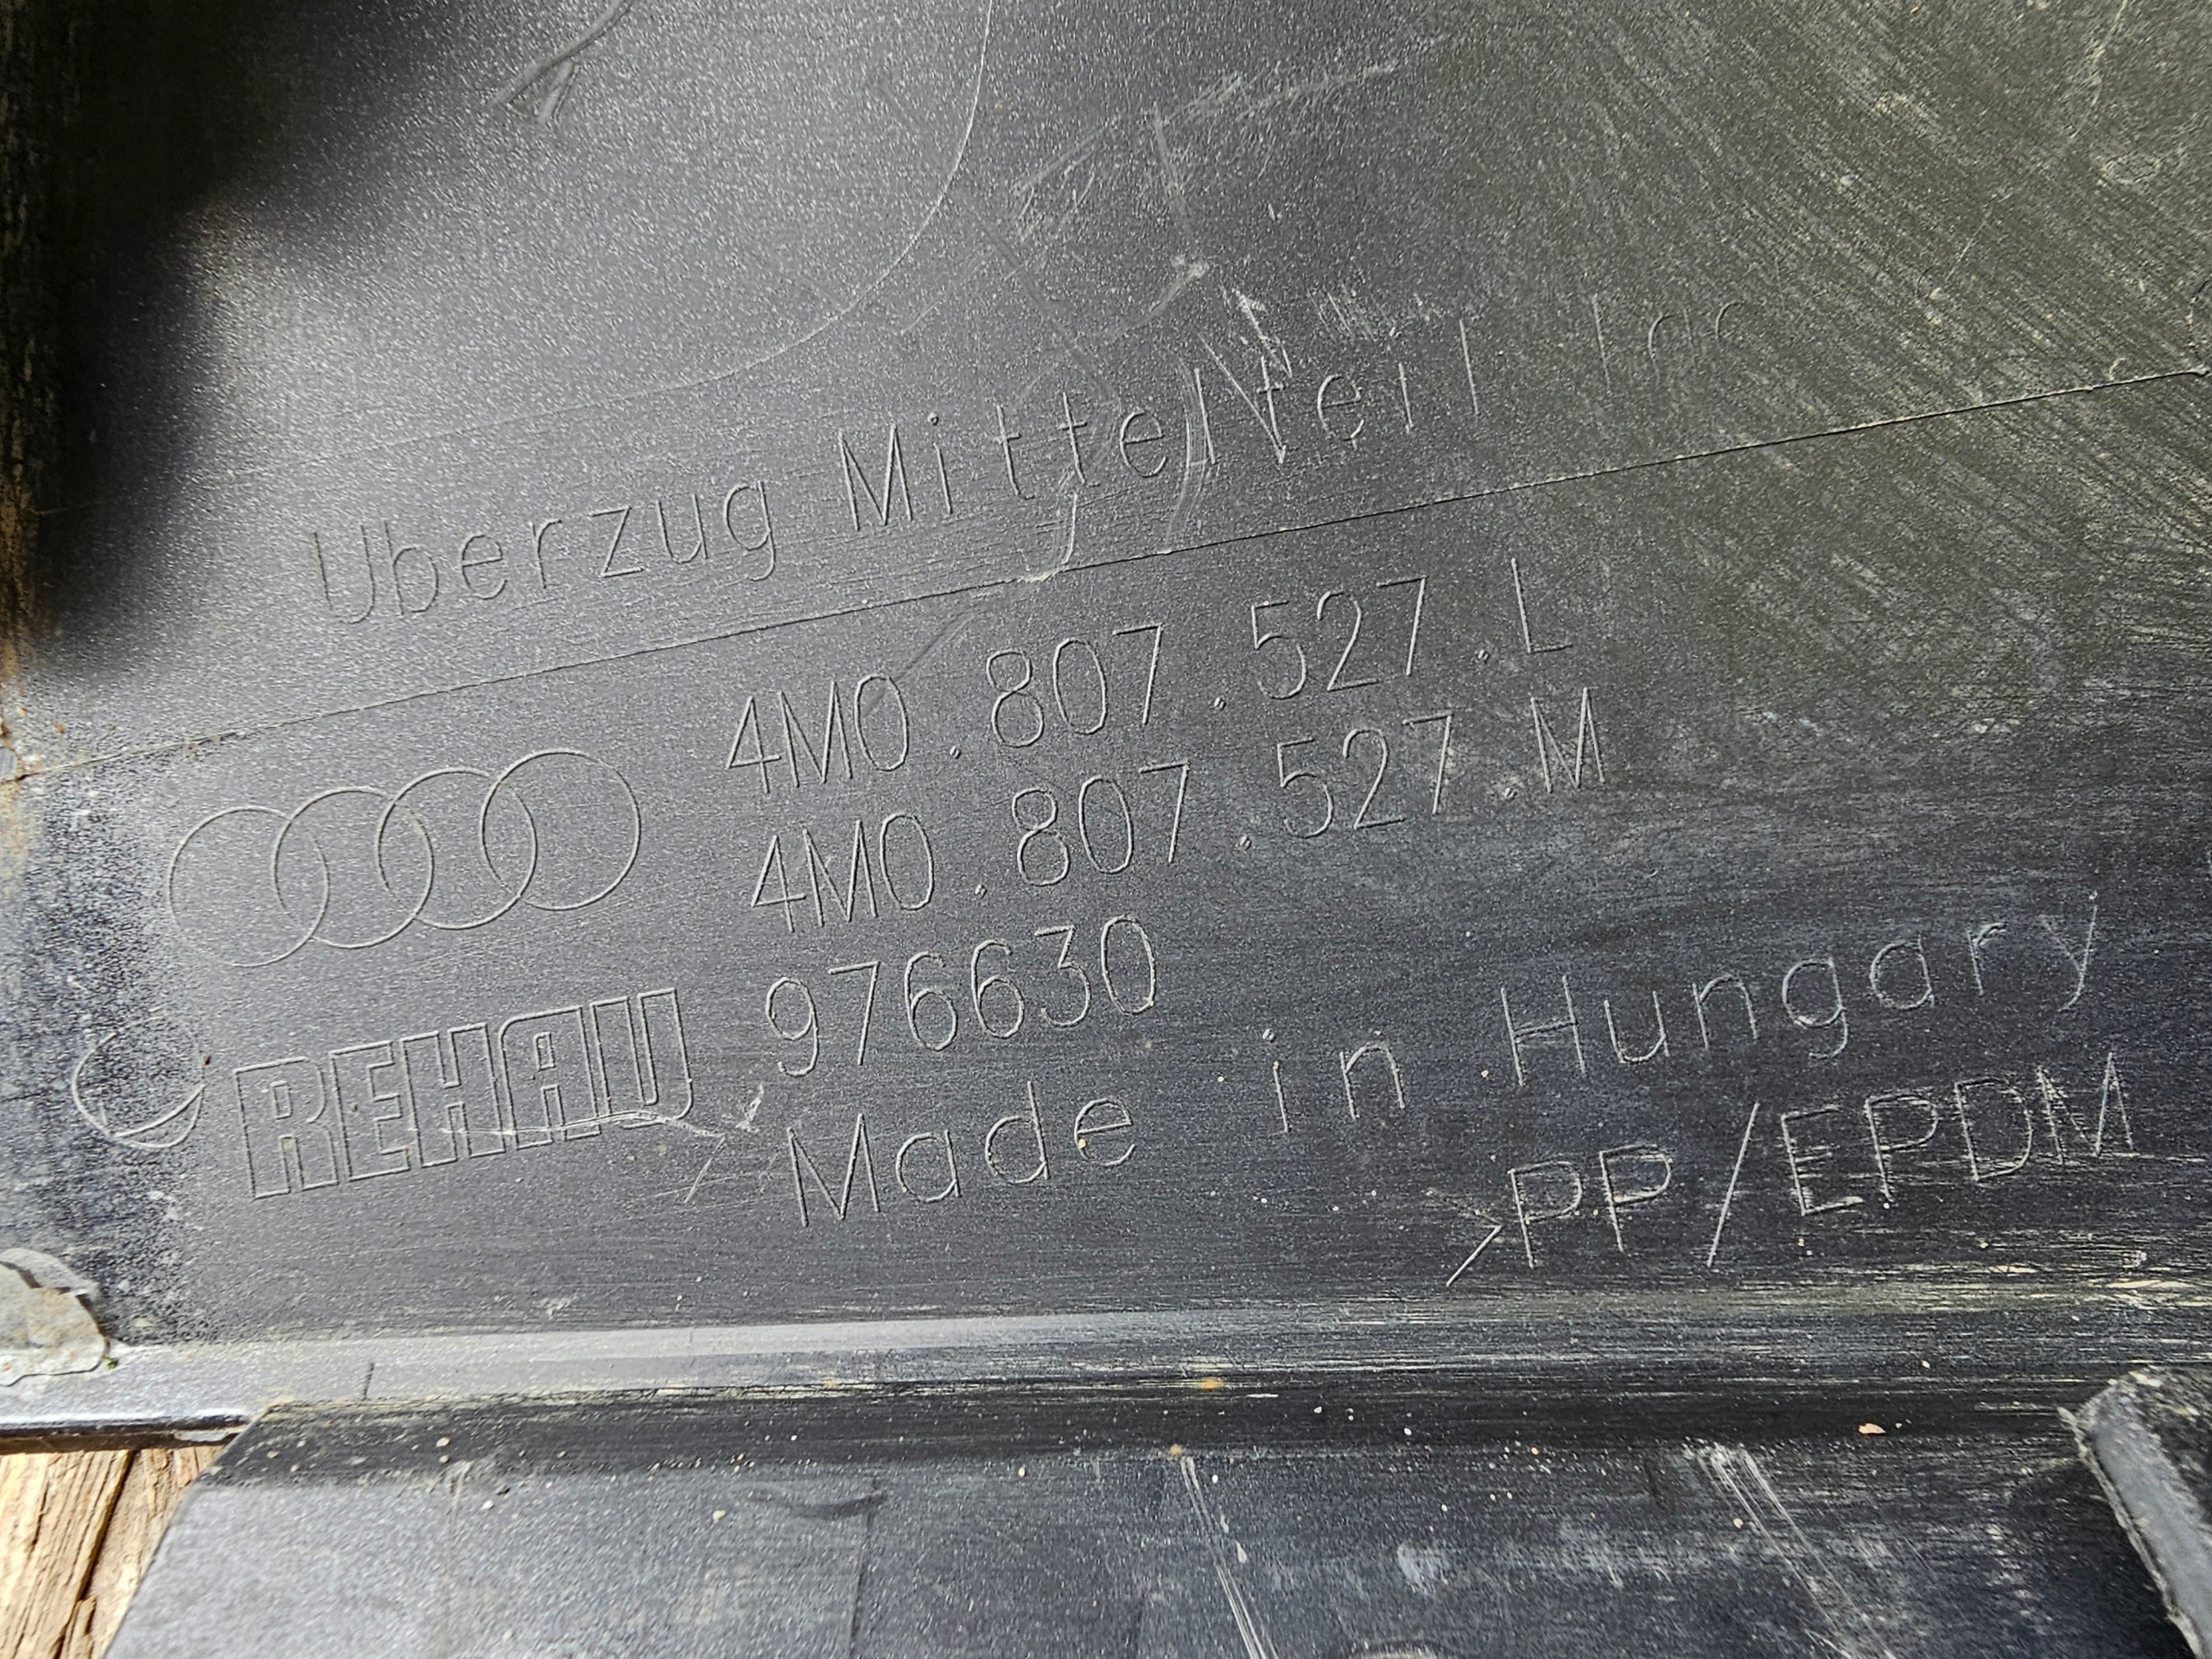 Uberzug Mittelteil
4M0.807.527.L
4M0.807.527.M
976630
REHAU
Made in Hungary
>PP/EPDM